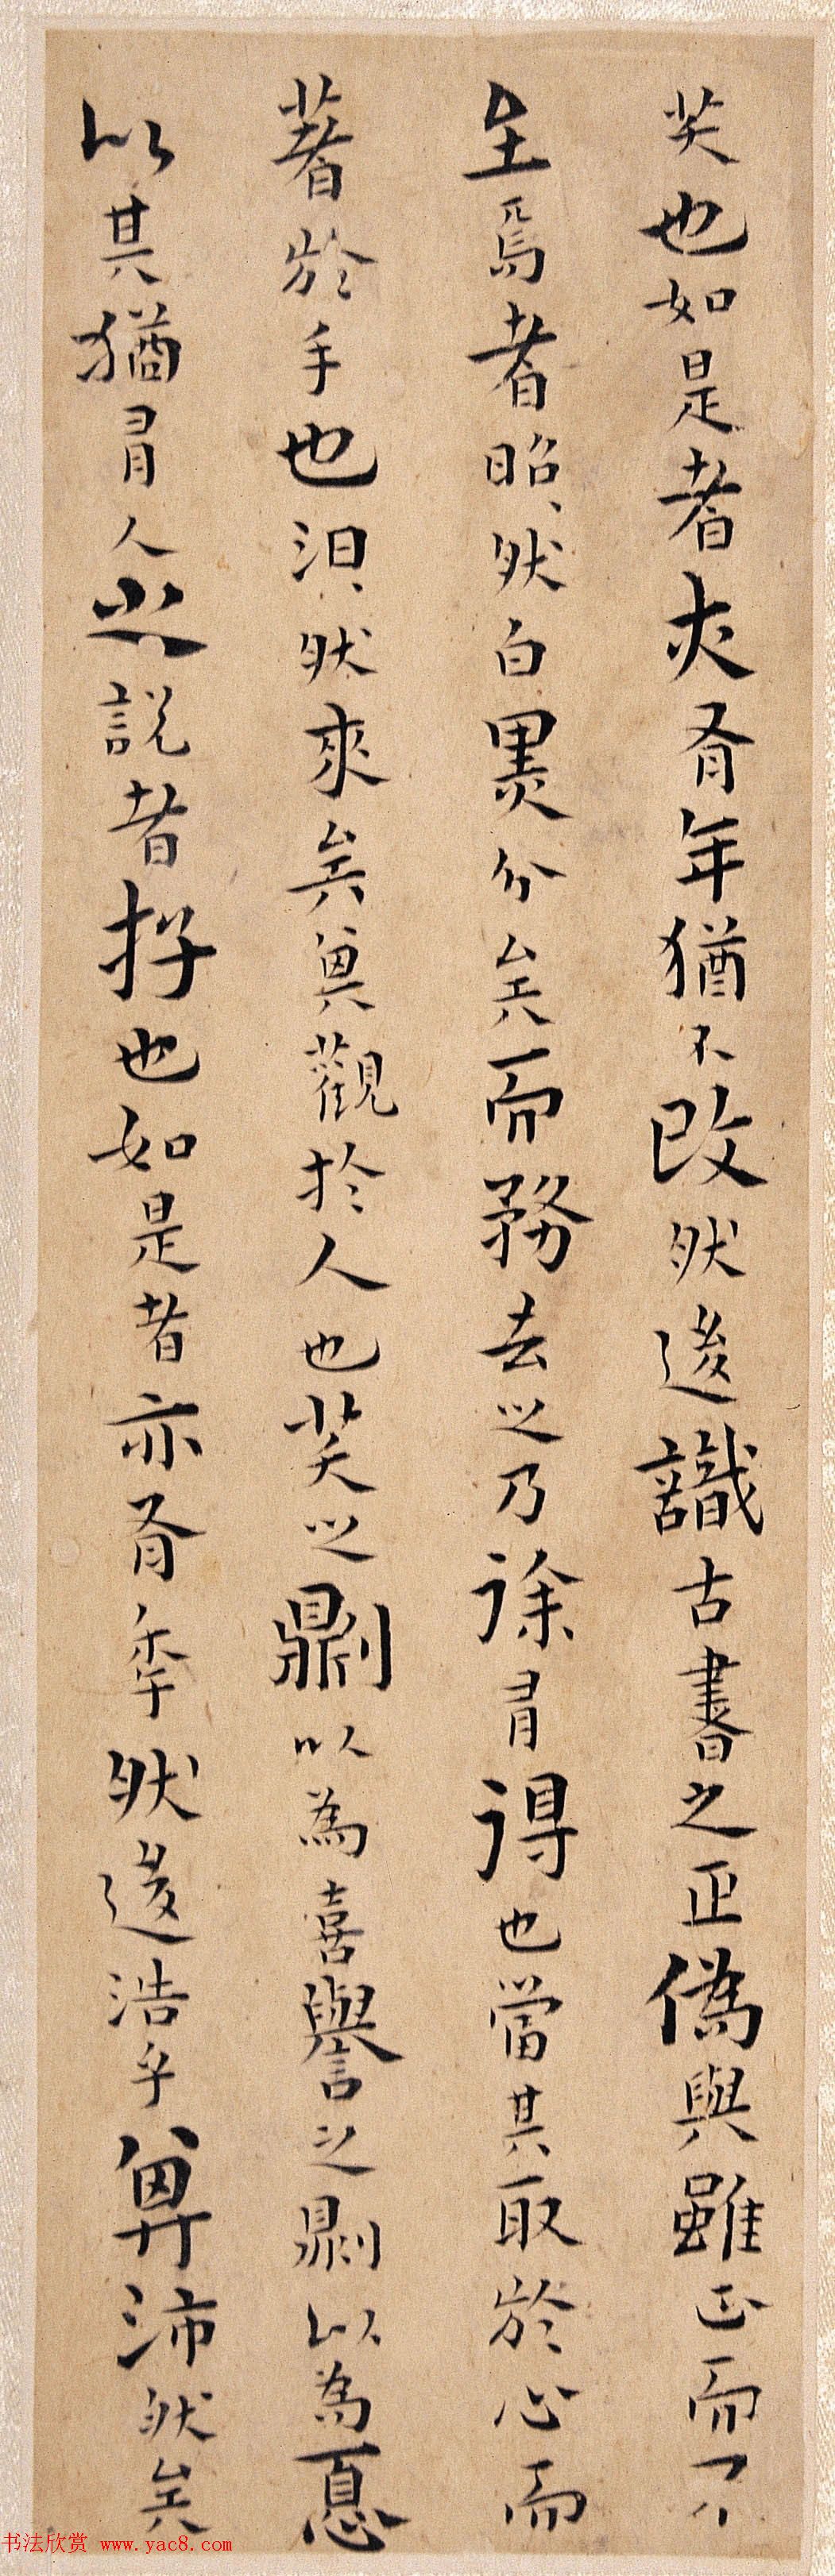 笑也如是者亦有年猶不改然後識古書之正偽與雖正而不
至焉者昭〻然白黑分矣而務去之乃徐有得也當其取於心而
著於手也汨〻然來矣其觀於人也笑之則以為喜譽之則以為憂
以其猶有人之說者存也如是者亦有年然後浩乎其沛然矣
书法欣赏 www.yac8.com